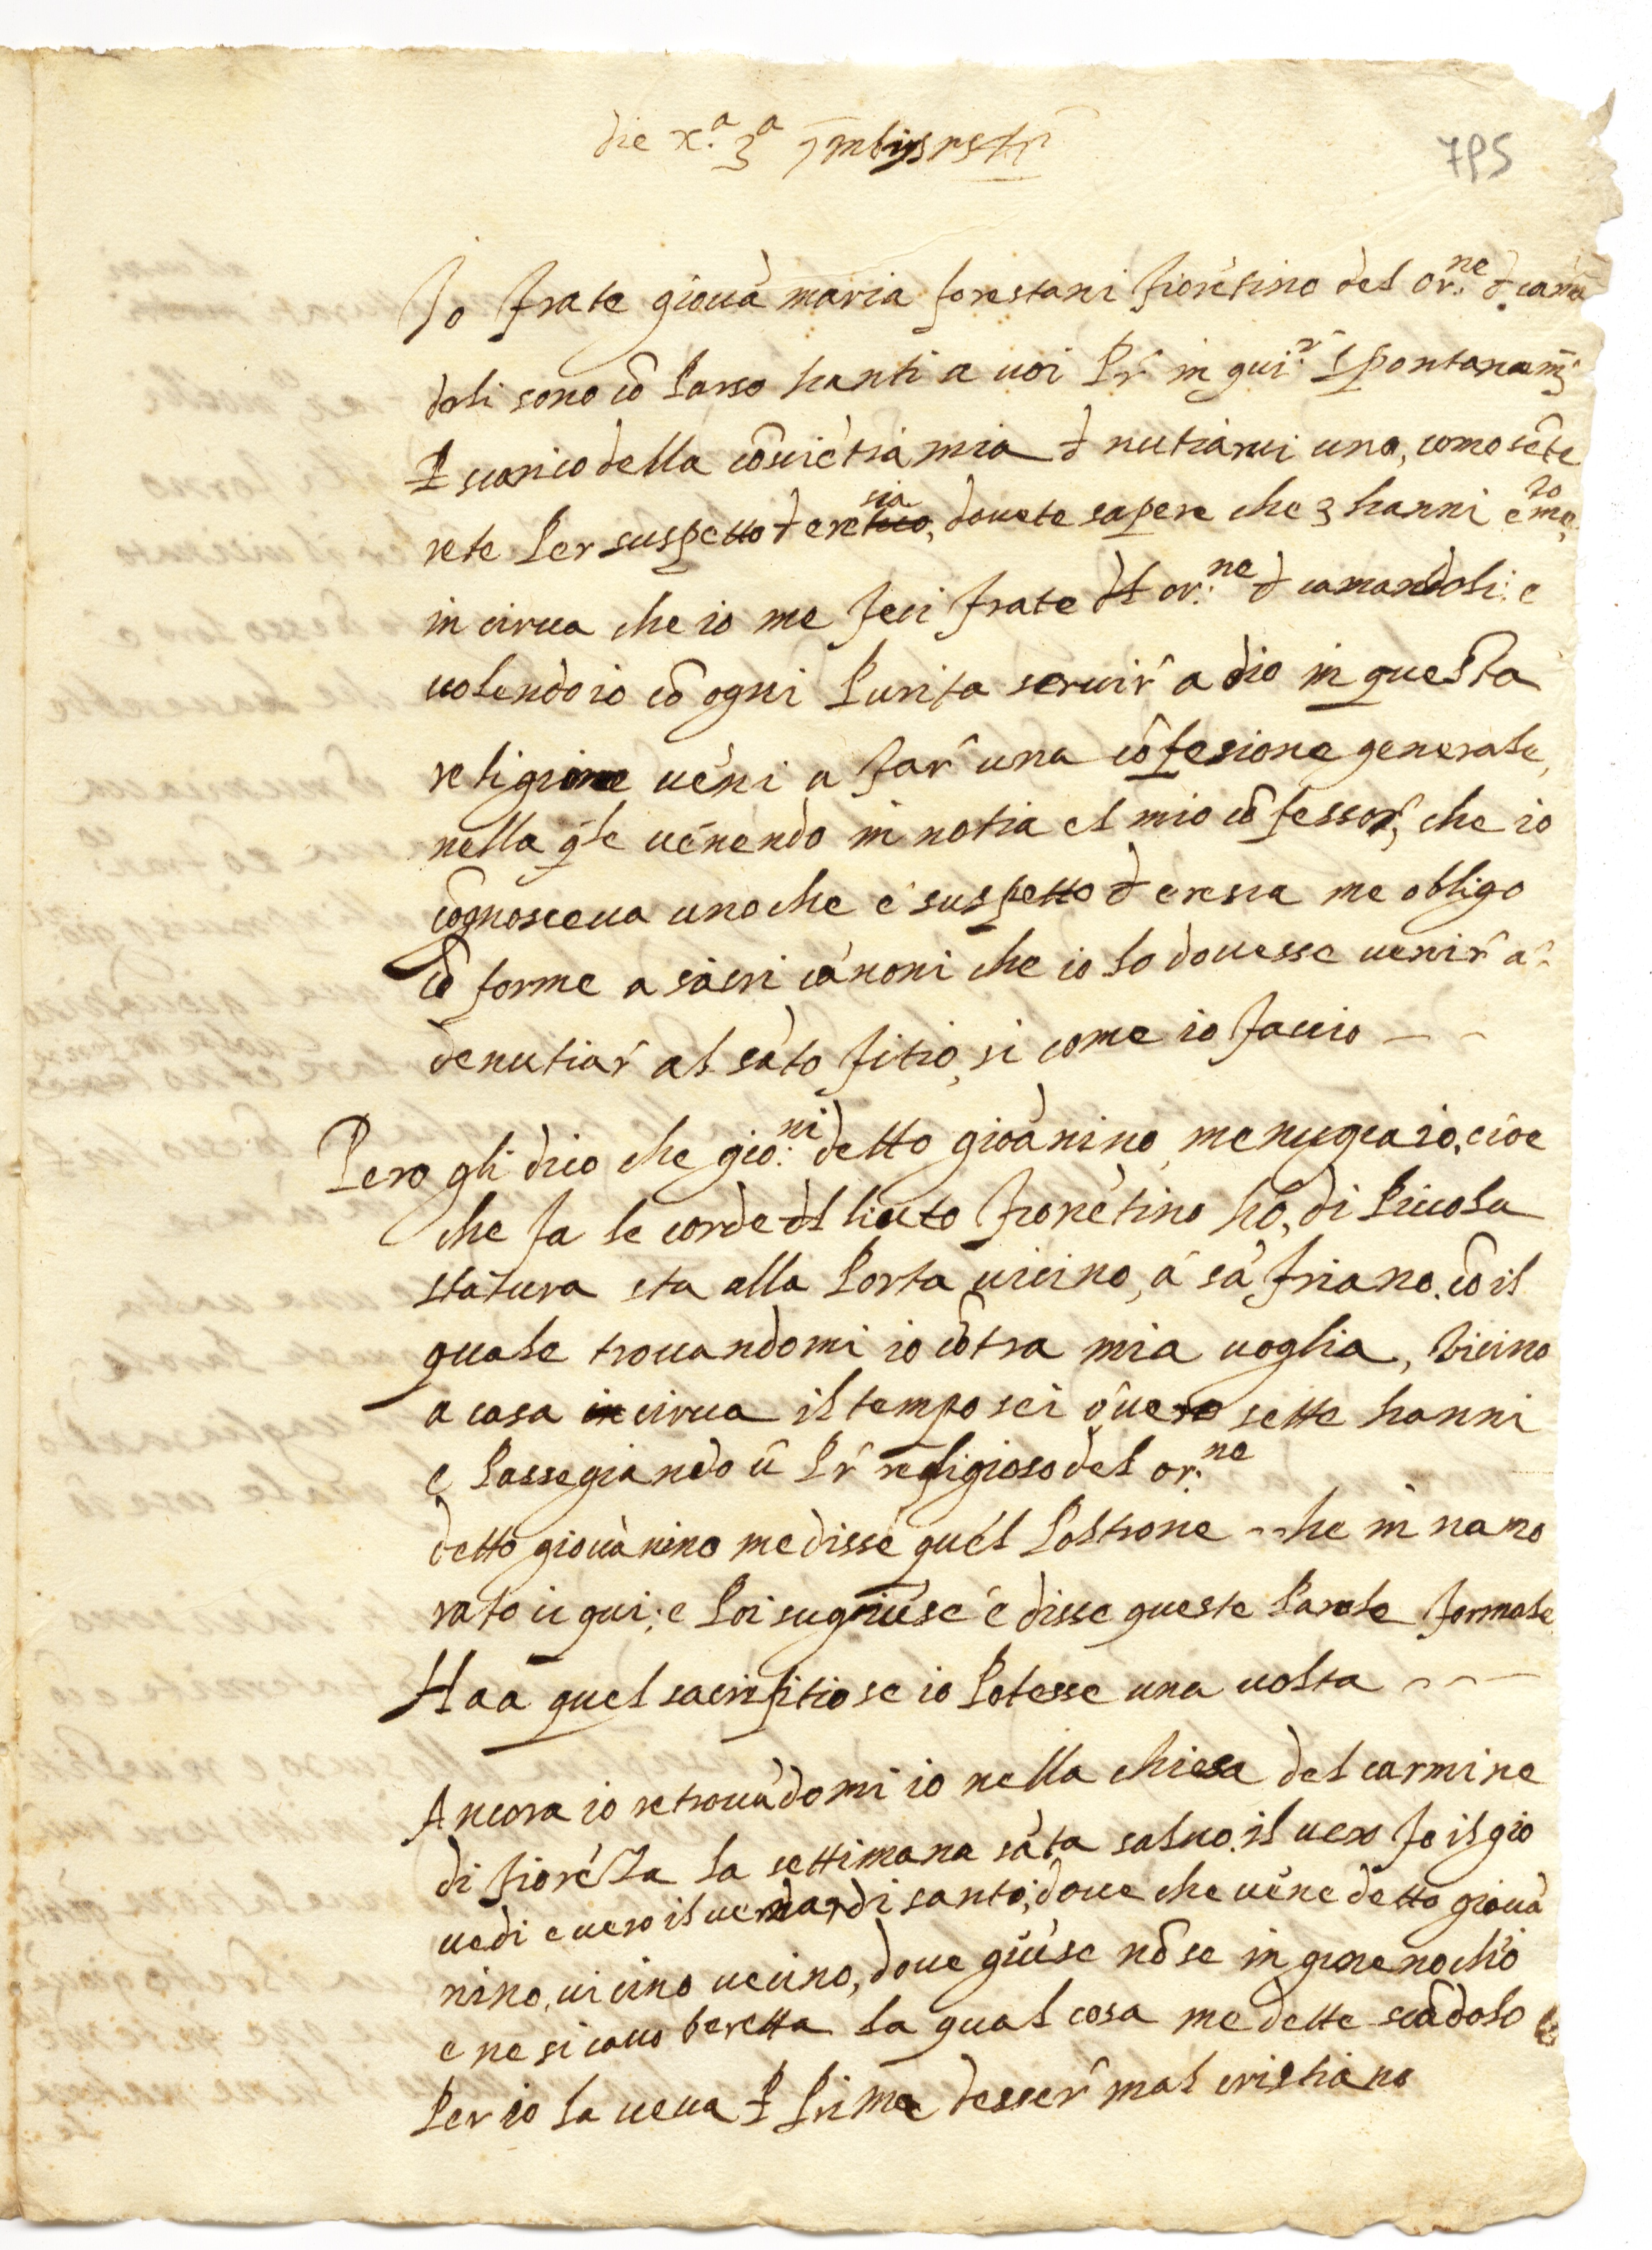 die x.a 3a
795
Io frate giouà maria forestani fiorétino del or.ne đ cama
doli sono cô parso hanti a uoi Pr̂ in qui.r spontanam̃
ꝑ scarico della côsciétia mia đ nutiarui uno, como séte
rete per suspetto đ eresia, douete sapere che 3 hanni e mo
in circa che io me feci frate dl or.ne đ camandoli: e
uolendo io cô ogni purita seruir̂ a dio in questa
religione uéni a far̂ una côfesione generale,
nella q̃le uénendo in notia el mio côfessor̂, che io
cognosceua uno che e suspetto đ eresia me obligo
cô forme a sàcri cànoni che io lo douesse uenir̂ a
denutiar̂ al sàto fitio, si come io faccio - -
Pero gli dico che gio.ni detto gioànino, menugiaio, cioe
che fa le corde dl liuto fiorétino hô, di picola
statura sta alla porta uicino, a sà friano. cô il
quale trouandomi io côtra mia uoglia, vicino
a casa in circa il tempo sei ouero sette hanni
e passegiando û pr̂ religioso del or.ne
detto giouànino me disse quel poltrone - he in namo
rato ii qui; e poi sugiùse e disse queste parole formale
Haa quel sacrifitio se io potesse una uolta - - -
Ancora io retrouàdomi io nella chiesa del carmine
di fioréza la settimana sàta saluo. il uero fo il gio
uedi e uero il uenardi santo; doue che uéne detto giouà
nino, uicino uecino, doue giùse nô se in ginenochio
e ne si cauo beretta la qual cosa me dette scàdolo
per io la ueua ꝑ prima desser̂ mal cristiano